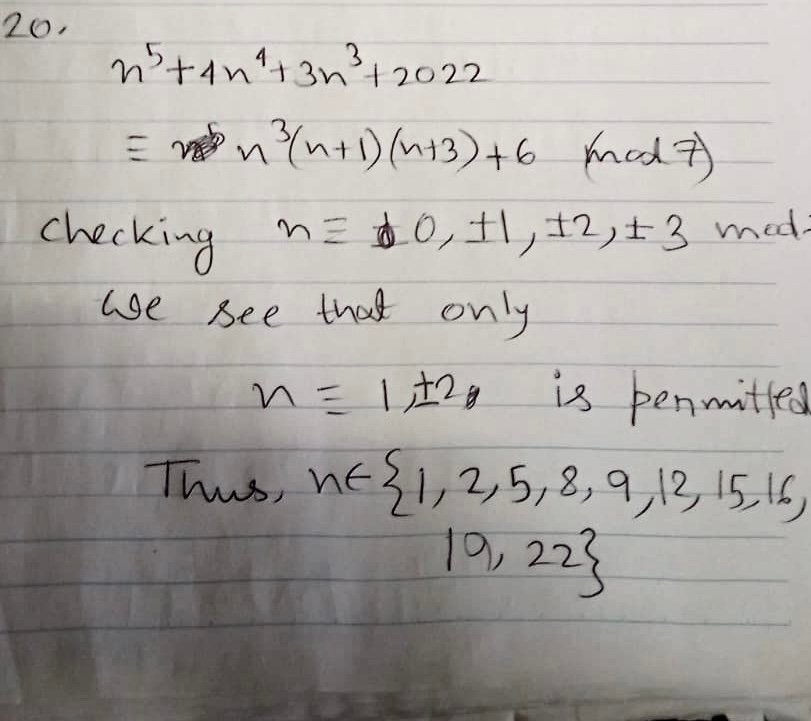 20.
n⁵+4n⁴+3n³+2022
≡ n³(n+1)(n+3)+6 (mod 7)
checking n ≡ 0, ±1, ±2, ±3 mod
we see that only
n ≡ 1, ±2, is permitted
Thus, n∈{1, 2, 5, 8, 9, 12, 15, 16,
19, 22}